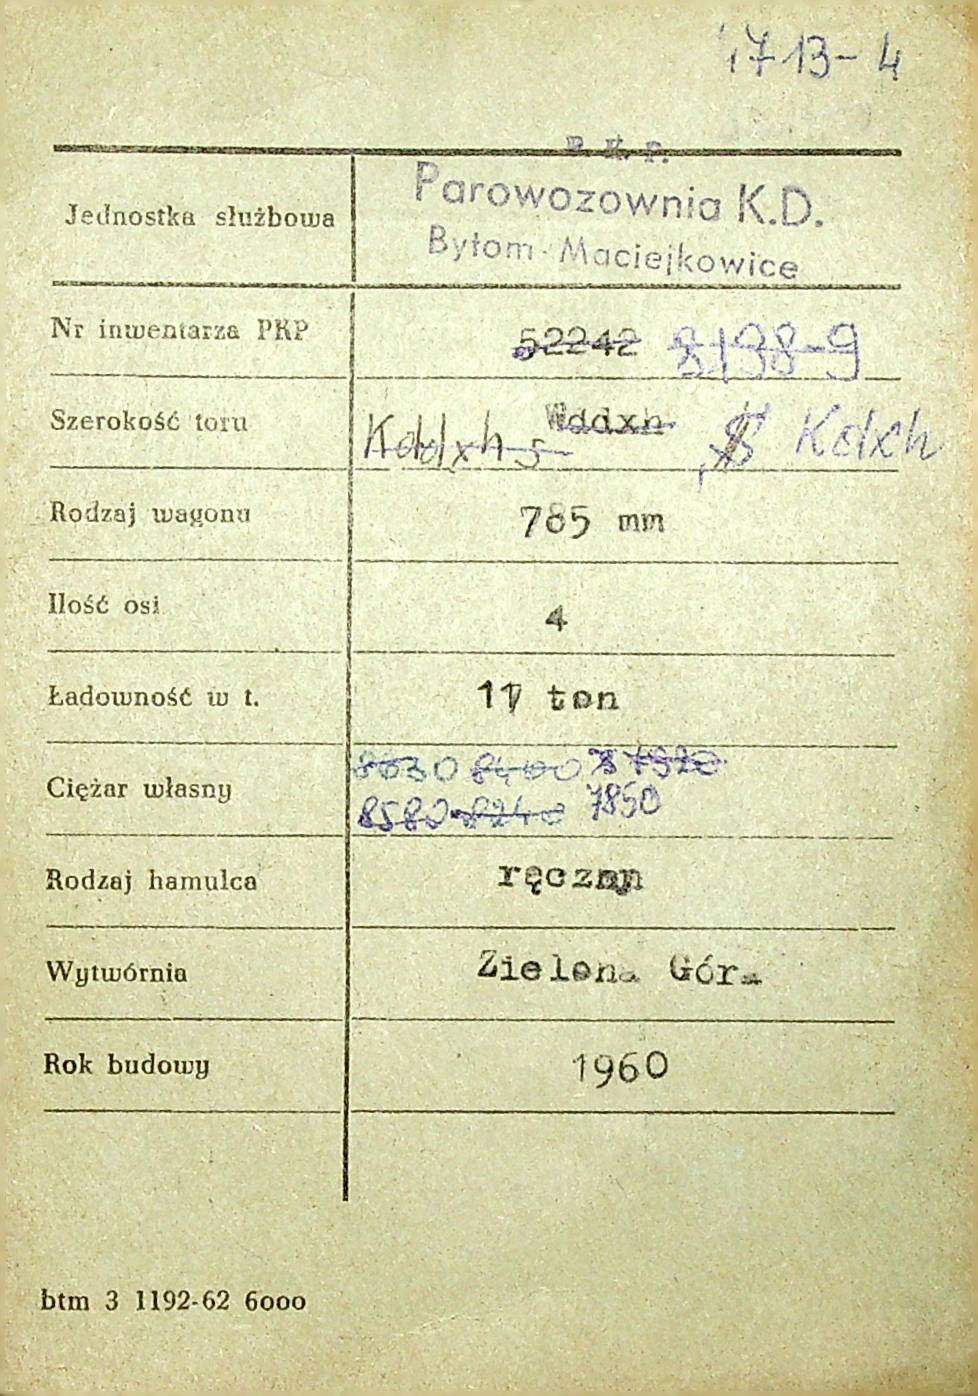 1713-4
P. K. P.
Parowozownia K.D.
Jednostka służbowa
Bytom-Maciejkowice
Nr inwentarza PKP 52242 8138-9
Szerokość toru Kddxhs Wddxh Kdxh
Rodzaj wagonu 785 mm
Ilość osi 4
Ładowność w t. 17 ton
8630 8400
Ciężar własny
8580 8240 7850
Rodzaj hamulca ręczny
Wytwórnia Zielona Góra
Rok budowy 1960
btm 3 1192-62 6000